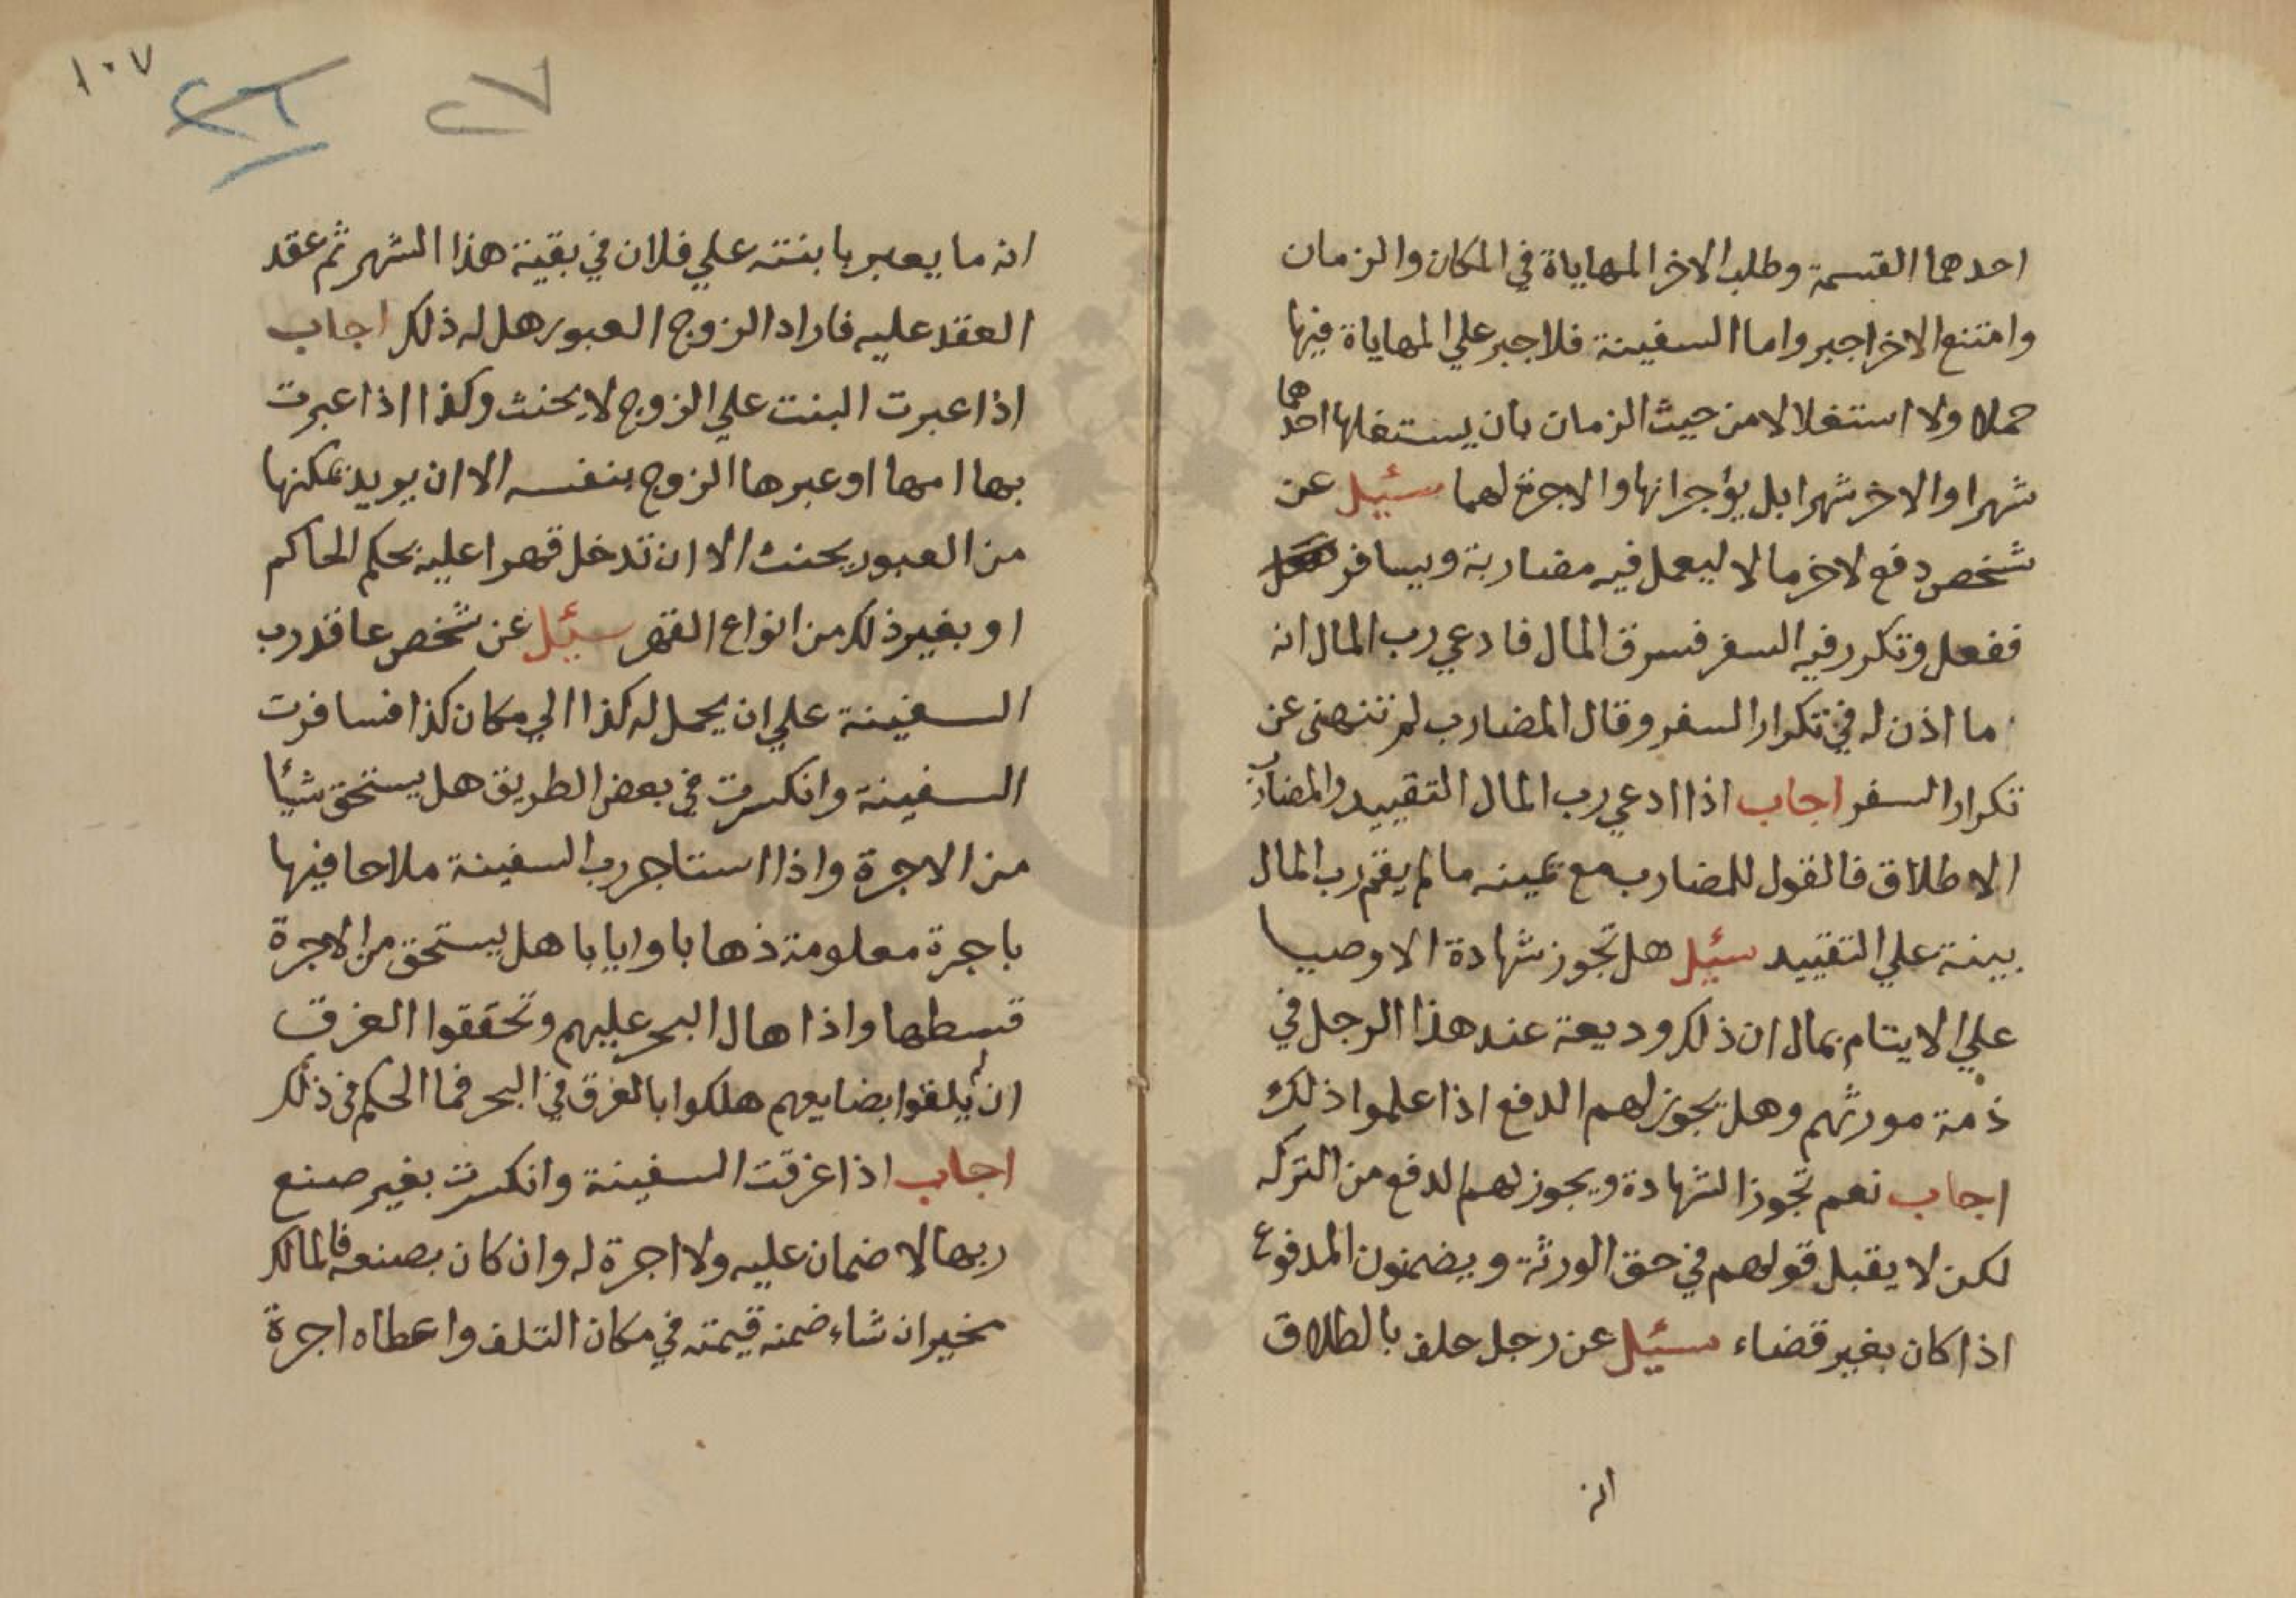 احدهما القسمة وطلب الاخر المهاياة في المكان والزمان
وامتنع الاخر اجبر واما السفينة فلا جبر علي المهاياة فيها
حملا ولا استغلالا من حيث الزمان بان يستغلها احدهما
شهرا والاخر شهرا بل يؤجرانها والاجرة لهما سئيل عن
شخص دفع لاخر مالا ليعمل فيه مضاربة ويسافر
ففعل وتكرر فيه السفر فسرق المال فادعي رب المال انه
ما اذن له في تكرار السفر وقال المضارب لم تنهنى عن
تكرار السفر اجاب اذا ادعي رب المال التقييد والمضارب
الاطلاق فالقول للمضارب مع يمينه ما لم يقم رب المال
بينة علي التقييد سئيل هل تجوز شهادة الاوصيا
علي الايتام بمال ان ذلك وديعة عند هذا الرجل في
ذمة مورثهم وهل يجوز لهم الدفع اذا علموا ذلك
اجاب نعم تجوز الشهادة ويجوز لهم الدفع من التركه
لكن لا يقبل قولهم في حق الورثة ويضمنون المدفوع
اذا كان بغير قضاء سئيل عن رجل حلف بالطلاق
انه
١٠٧
٢٦
٢٧
انه ما يعبر بابنته علي فلان في بقية هذا الشهر ثم عقد
العقد عليه فاراد الزوج العبور هل له ذلك اجاب
اذا عبرت البنت علي الزوج لا يحنث وكذا اذا عبرت
بها امها او عبرها الزوج بنفسه الا ان يريد تمكنها
من العبور يحنث الا ان تدخل قهرا عليه بحكم الحاكم
او بغير ذلك من انواع القهر سئيل عن شخص عاقد رب
السفينة علي ان يحمل له كذا الي مكان كذا فسافرت
السفينة وانكسرت في بعض الطريق هل يستحق شيأ
من الاجرة واذا استاجر رب السفينة ملاحا فيها
باجرة معلومة ذهابا وايابا هل يستحق من الاجرة
قسطها واذا هال البحر عليهم وتحققوا الغرق
ان لم يلقوا بضايعهم هلكوا بالغرق في البحر فما الحكم في ذلك
اجاب اذا غرقت السفينة وانكسرت بغير صنع
ربها لا ضمان عليه ولا اجرة له وان كان بصنعه فالمالك
مخير ان شاء ضمنه قيمته في مكان التلف واعطاه اجرة